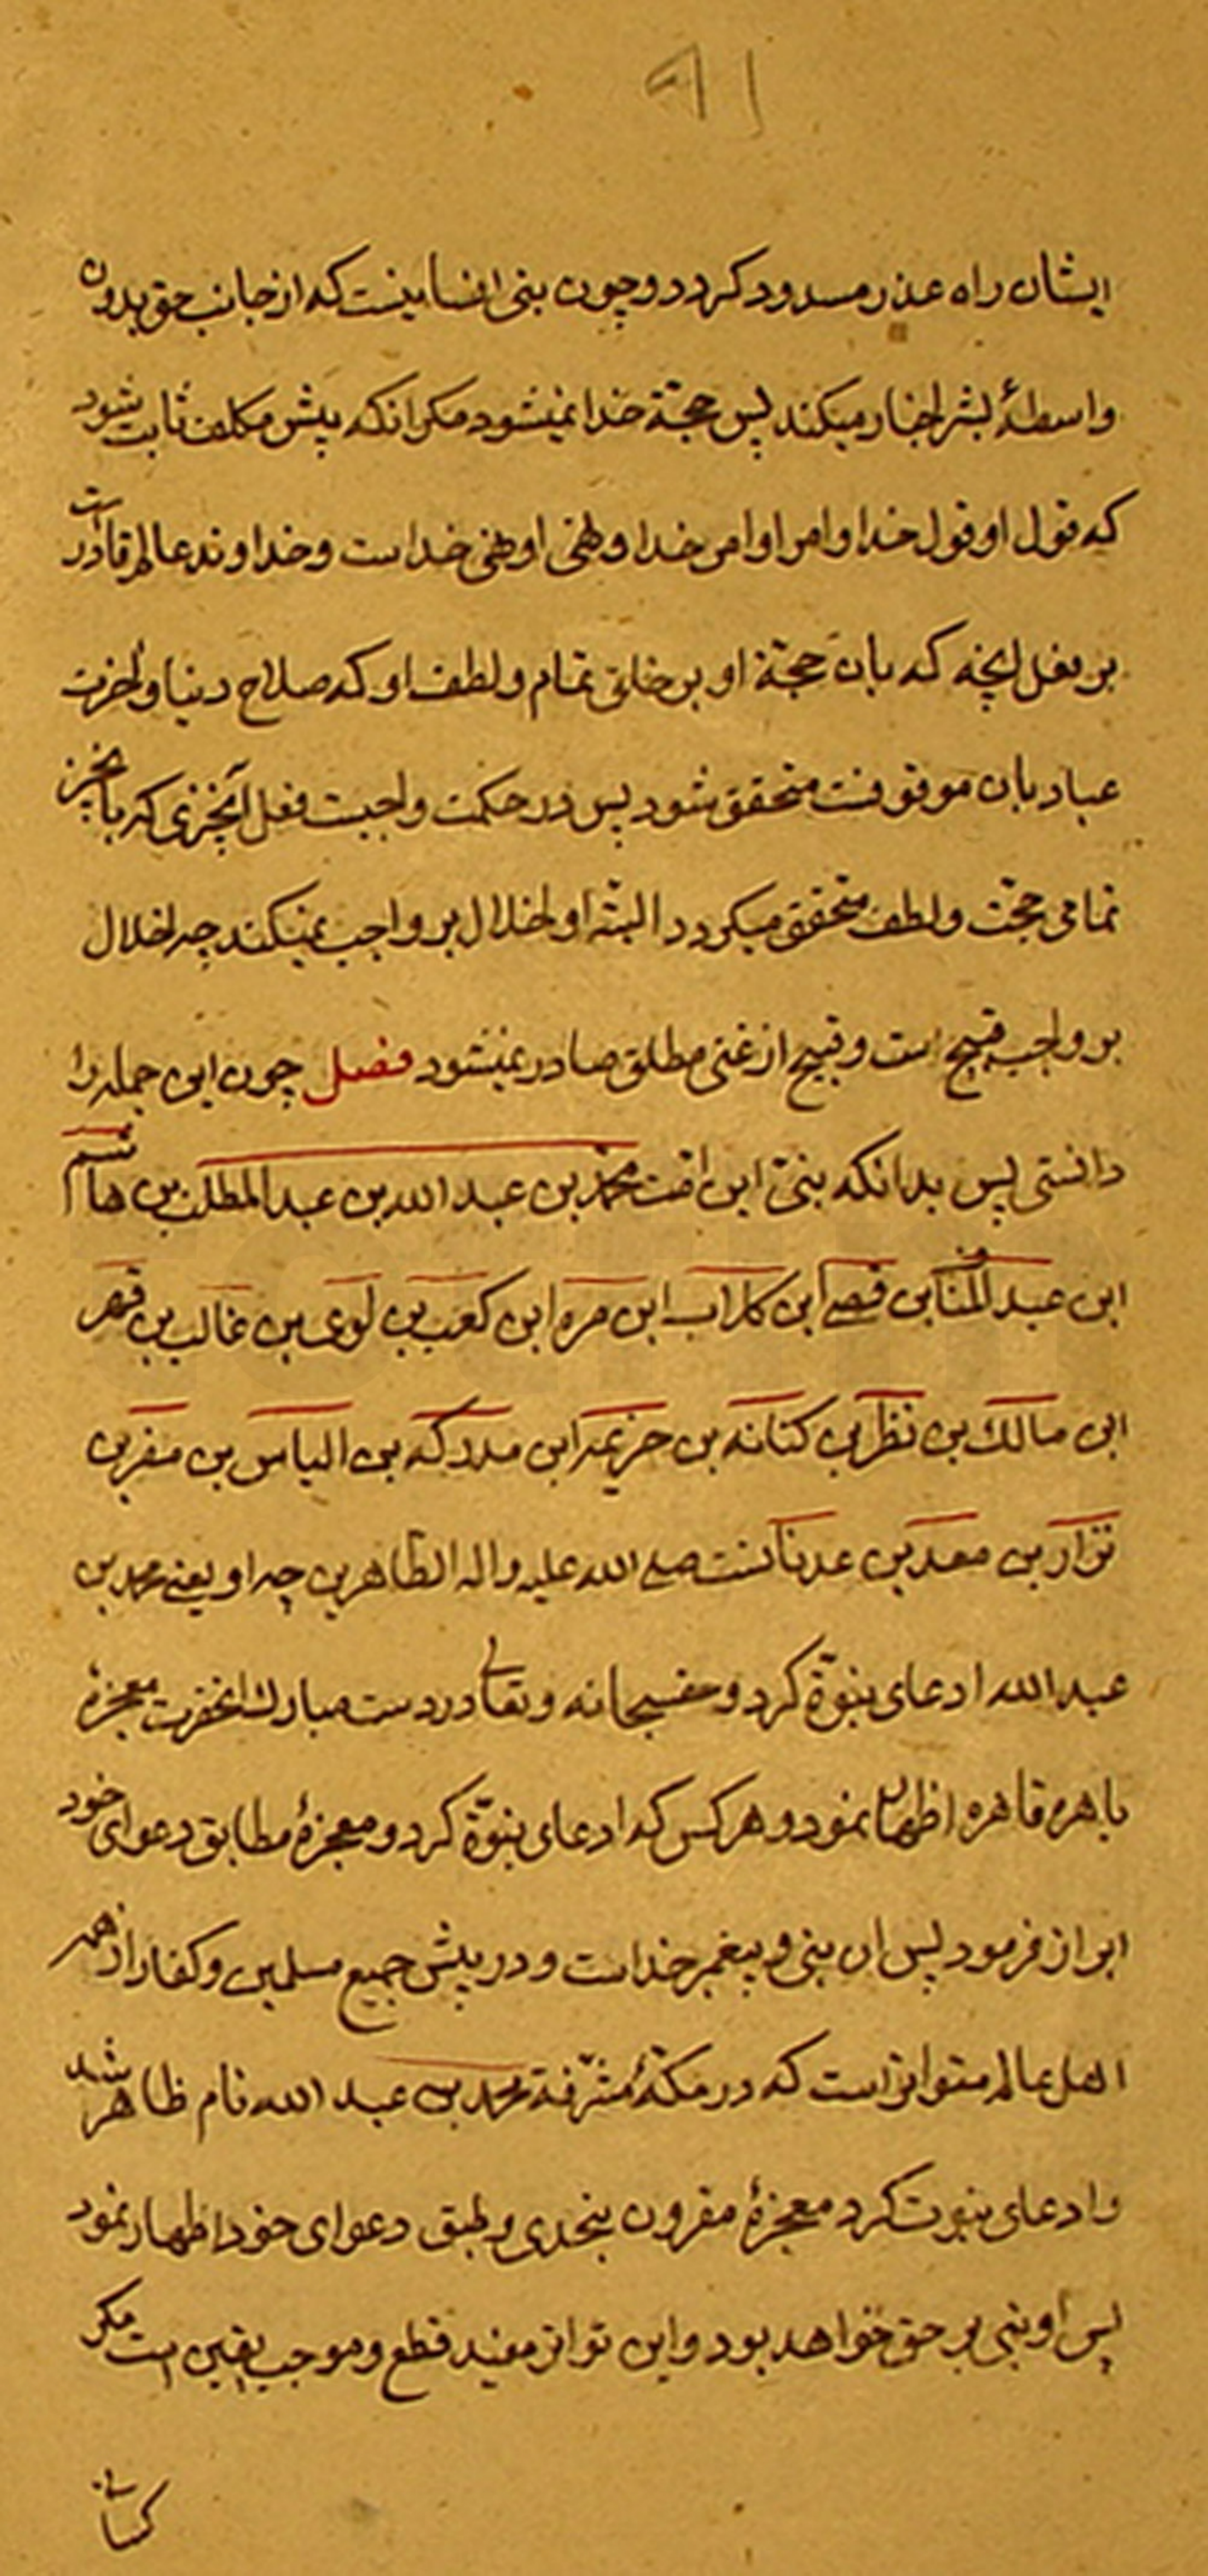 ٩١
ایشان راه عذر مسدود کردد و چون بنی انسا نیست که از جانب حق بدون
واسطۀ بشر اخبار میکند پس حجة خدا نمیشود مکر انکه پیش مکلف ثابت شود
که قول او قول خدا و امر او امر خدا و نهی او نهی خداست و خداوند عالم قادر است
بر فعل انچه که بان حجة او بر خلق تمام و لطف او که صلاح دنیا و اخرت
عباد بان موقوفست متحقق شود پس در حکمت واجبست فعل آنچیزی که بانچیز
تمامی حجت و لطف متحقق میکردد البته او اخلال بر واجب نمیکند چه اخلال
بر واجب قبیح است و قبیح از غنی مطلق صادر نمیشود فصل چون این جمله را
دانستی پس بدانکه بنی این امت محمد بن عبد الله بن عبد المطلب بن هاشم
ابن عبد المناف بن قصے ابن کلاب ابن مره ابن کعب بن لوی بن غالب بن فهر
ابن مالک بن نظر بن کنانه بن خزیمه ابن مدرکه بن الیاس بن مضر بن
نزار بن معد بن عدنانست صلی الله علیه و اله الطاهرین چه او یعنے محمد بن
عبد الله ادعای نبوة کرد و حقسبحانه و تعالی در دست مبارک انحضرت معجزه
باهره قاهره اظهار نمود و هر کس که ادعای نبوّة کرد و معجزۀ مطابق دعوای خود
ابراز فرمود پس ان بنی و پیغمبر خداست و در پیش جمیع مسلمین و کفار از همه
اهل عالم متواتر است که در مکۀ مشرّفة محمد بن عبد الله نام ظاهر شد
و ادعای نبوت کرد معجزۀ مقرون بتحدی و طبق دعوای خود اظهار نمود
پس او بنی بر حق خواهد بود و این تواتر مفید قطع و موجب یقین است مکر
کسانی